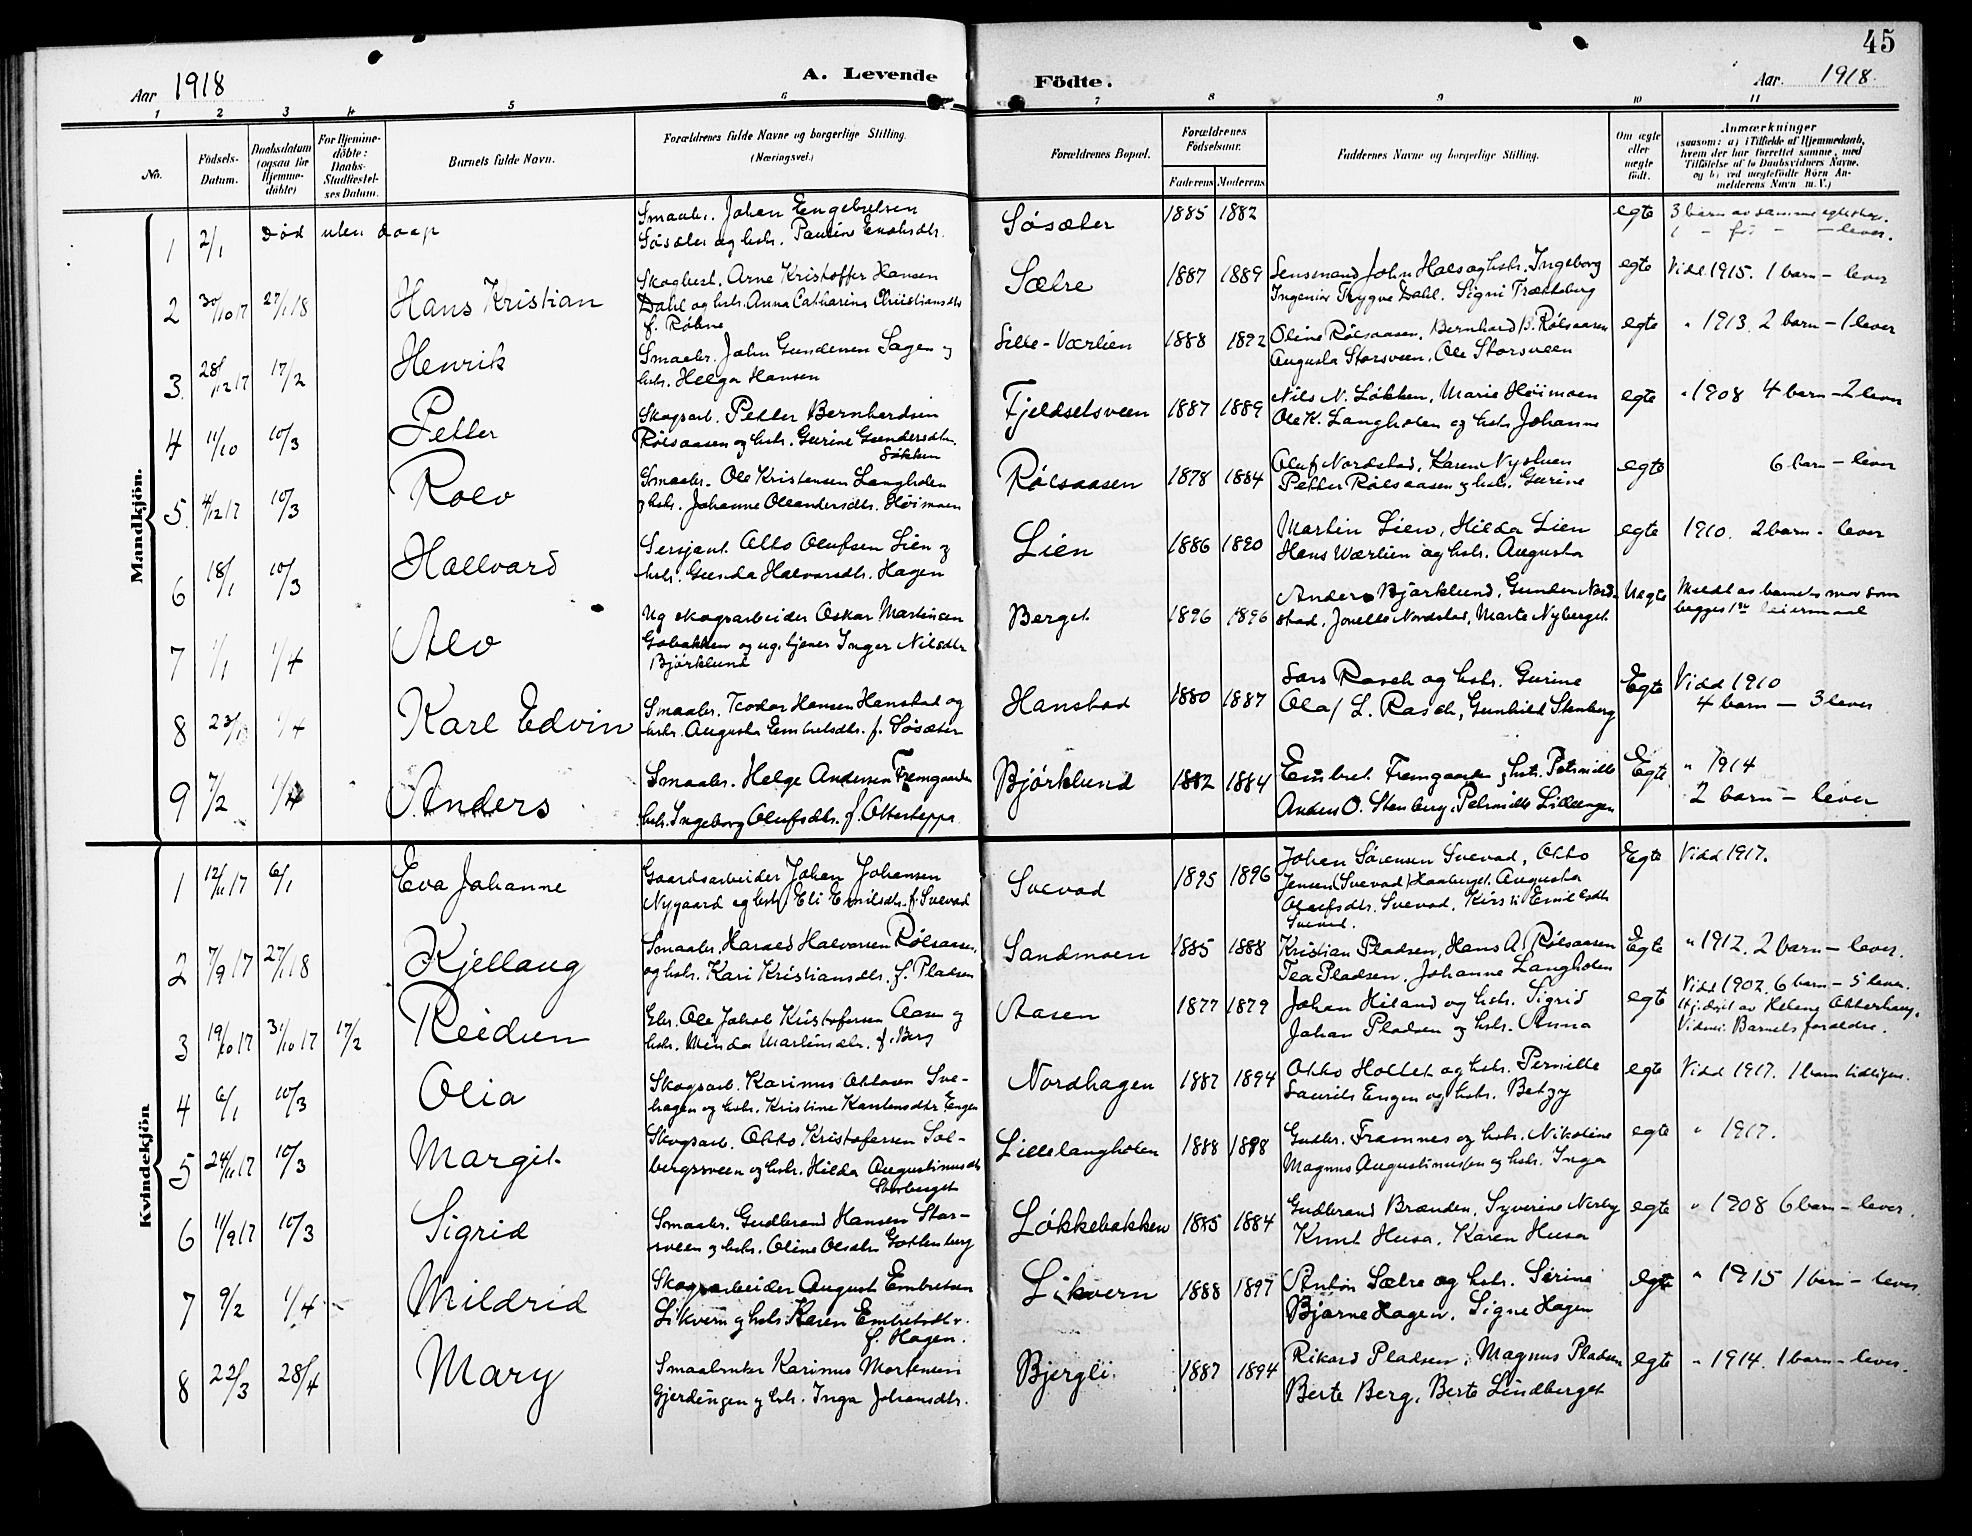 45
Aar 1918
A. Levende Födte.
Aar 1918
1 2 3 4 5 6 7 8 9 10 11
No.
Födsels-Datum.
Daabsdatum (ogsaa for Hjemme-döbte)
For Hjemme-döbte: Daabs-Stadfæstel-ses Datum.
Barnets fulde Navn.
Forældrenes fulde Navne og borgerlige Stilling. (Næringsvei.)
Forældrenes Bopæl.
Forældrenes Födselsaar.
Faderens Moderens
Faddernes Navne og borgerlige Stilling.
Om ægte eller uægte födt.
Anmærkninger
(saasom: a) i Tilfælde af Hjemmedaab, hvem der har forrettet samme, med Tilföielse af to Daabsvidners Navne, og b) ved uægtefödte Börn An-melderens Navn m. V.)
Mandkjön.
1 2/1 Død uten daap
Smaabr. Johan Engebretsen
Søsæter og hstr. Pauline
Søsæter 1885 1882 egte
3 barn av samme
2 30/10 17 27/1 18 Hans Kristian
Skogbest. Arne Kristoffer Hansen
Dahl og hstr. Anna Catharina Christiansdtr
f. Røhne
Sætre 1887 1889
Lensmand John Hals og hstr. Ingeborg
Ingeniør Trygve Dahl. Signi Trætteberg
egte Vidd. 1915. 1 barn - lever
3 28/12 17 17/2 Henrik
Smaabr. John Gundersen Sagen og
hstr. Helga Hansen
Lille-Værlien 1888 1892
Oline Rølsaasen, Bernhard B. Rølsaasen
Augusta Storsveen, Ole Storsveen
egte " 1913. 2 barn - 1 lever
4 11/10 10/3 Petter
Skogsarb. Petter Bernhardsen
Rølsaasen og hstr. Gurine Gundersdtr.
Løkken
Fjeldsetsveen 1887 1889
Nils N. Løkken, Marie Høimoen
Ole K. Langholen og hstr Johanne
egte " 1908 4 barn - 2 lever
5 4/12 17 10/3 Rolv
Smaabr. Ole Kristensen Langholen
og hstr. Johanne Oleandersdtr. Høimoen
Rølsaasen 1878 1884
Oluf Nordstad, Karen Nystuen
Petter Rølsaasen og hstr. Gurine
egte 6 barn - lever
6 18/1 10/3 Hallvard
Sersjant Otto Olufsen Lien og
hstr. Gunda Halvorsdtr. Hagen
Lien 1886 1890
Martin Lien, Hilda Lien
Hans Værlien og hstr. Augusta
egte 1910. 2 barn - lever
7 1/1 1/4 Alv
Ug skogsarbeider Oskar Martinsen
og ug. tjener Inger Nilsdtr
Bjørklund
Berget 1896 1896
Anders Bjørklund, Gunder Nord-
stad, Jonette Nordstad, Marte Nyberget
Uegte Meldt av barnets mor som
begges 1ste leiermaal
8 1/4 Karl Edvin
Smaabr. Teodor Hansen Hanstad og
hstr. Augusta Embretsdtr. f. Søsæter
Hanstad 1880 1887
Lars Rasch og hstr. Gurine
Olaf L. Rasch, Gunhild Stenberg
Egte Vidd 1910
4 barn - 3 lever
9 7/2 1/4 Anders
Smaabr. Helge Andersen Fremgaarden
hstr. Ingeborg Olufsdtr. f.
Bjørklund 1882 1884
Embret Fremgaarden og hstr. Petronille
Anders O. Stenberg, Petronille Lilleengen
Egte " 1914
2 barn - lever
Kvindekjön
1 12/11 17 6/1 Eva Johanne
Gaardsarbeider Johan Johansen
Nygaard og hstr Eli Emilsdtr. f. Svevad
Svevad 1895 1896
Johan Sørensen Svevad, Otto
Jensen (Svevad) Haaberget. Augusta
Olufsdtr. Svevad, Kirsti Emilsdtr
Svevad.
Egte Vidd 1917.
2 7/9 17 27/1 18 Kjellaug
Smaabr. Harald Halvorsen Rølsaasen,
og hstr. Kari Kristiansdtr. f. Pladsen
Sandmoen 1885 1888
Kristian Pladsen, Hans A. Rølsaasen
Tea Pladsen, Johanne Langholen
Egte " 1912. 2 barn - lever.
3 19/10 17 31/10 17 17/2 Reidun
Gbr. Ole Jakob Kristofersen Aasen og
hstr. Minda Martinsdtr. f. Berg
Aasen 1877 1879
Johan Hiland og hstr. Sigrid
Johan Pladsen og hstr. Anna
egte Vidd 1902. 6 barn - 5 lever.
Hj.døpt av Helene Otterhaug.
Vidner: Barnets forældre.
4 6/1 10/3 Olia
Skogsarb. Karinus Ottosen Sve-
hagen og hstr. Kristine Karstensdtr Engen
Nordhagen 1887 1894
Otto Holtet og hstr. Pernille
Laurits Engen og hstr. Betzy
egte Vidd 1917. 1 barn tidligere.
5 24/11 17 10/3 Margit
Skogsarb. Otto Kristofersen Sol-
bergsveen og hstr. Hilda Augustinusdtr
Storberget
Lillelangholen 1888 1898
Gudbr. Framnes og hstr. Nikoline
Magnus Augustinussen og hstr. Inga
egte " 1917.
6 11/9 17 10/3 Sigrid
Smaabr. Gudbrand Hansen Stor-
sveen og hstr. Oline Olsdtr Gottenberg
Løkkebakken 1885 1884
Gudbrand Brænden, Syverine Nerby
Knut Husa, Karen Husa
egte " 1908 6 barn - lever.
7 9/2 1/4 Mildrid
Skogsarbeider August Embretsen
Likvern og hstr. Karen Embretsdtr.
f. Hagen.
Likvern 1888 1897
Anton Sætre og hstr. Serine
Bjarne Hagen, Signe Hagen
egte " 1915 1 barn - lever.
8 22/3 28/4 Mary
Smaabruker Karinus Mortensen
Gjerdingen og hstr. Inga Johansdtr.
Bjergli. 1887 1894
Rikard Pladsen, Magnus Pladsen
Berte Berg, Berte Lindberget
egte " 1914. 1 barn - lever.